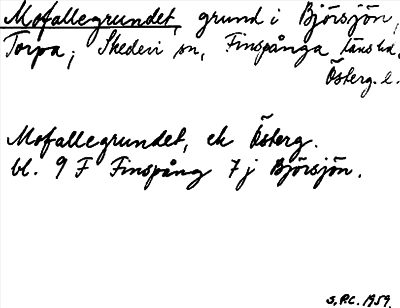 Mofallegrundet, grund i Björsjön,
Torpa; Skedevi sn, Finspånga läns hd.
Österg. l.
Mofallegrundet, ek Österg.
bl. 9 F Finspång 7 j Björsjön.
S.P.C. 1959.